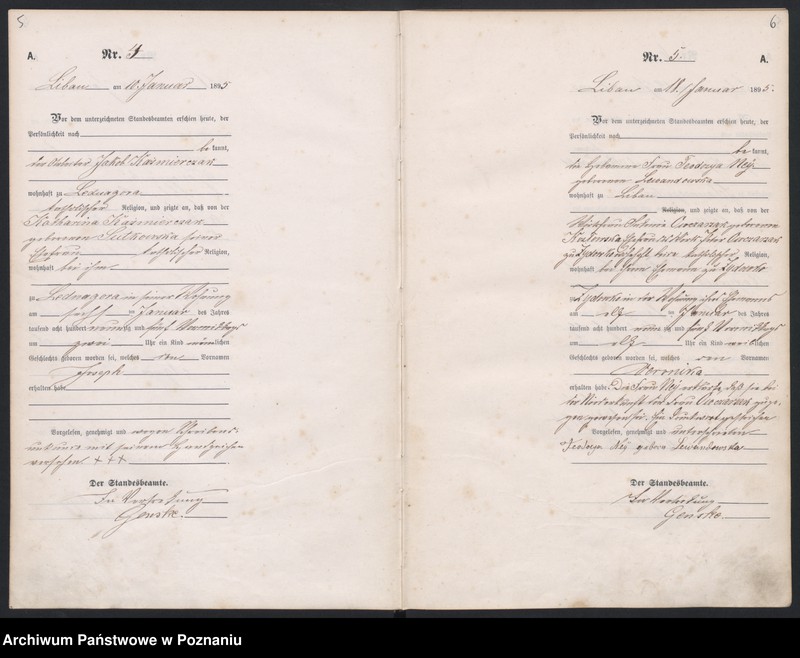 5
A.
Nr. 4
Libau am 10. Januar 1895
Vor dem unterzeichneten Standesbeamten erschien heute, der
Persönlichkeit nach
be kannt,
der Jakob Kaźmierczak
wohnhaft zu Lednagora
katholischer Religion, und zeigte an, daß von der
Katharina Kaźmierczak
geborenen Sulkowska seiner
Ehefrau katholischer Religion,
wohnhaft bei ihm
zu Lednagora in seiner Wohnung
am Januar des Jahres
tausend acht hundert neunzig und fünf Vormittags
um zwei Uhr ein Kind männlichen
Geschlechts geboren worden sei, welches den Vornamen
Joseph
erhalten habe
Vorgelesen, genehmigt und wegen Schreibens-
unkunde mit seinem Handzeichen
versehen +++
Der Standesbeamte.
In Vertretung
Genske.
6
Nr. 5.
A.
Libau am 11. Januar 1895.
Vor dem unterzeichneten Standesbeamten erschien heute, der
Persönlichkeit nach
be kannt,
die Hebamme Frau Teodozya Ney
geborenen Lewandowska
wohnhaft zu Libau
Religion, und zeigte an, daß von der
Antonie geborenen
katholischer Religion,
wohnhaft bei ihrem Ehemann zu
zu in der Wohnung ihres Ehemannes
am elf Januar des Jahres
tausend acht hundert neunzig und fünf Vormittags
um elf Uhr ein Kind weiblichen
Geschlechts geboren worden sei, welches den Vornamen
Veronika
erhalten habe. Die Frau Ney erklärte, daß sie bei
der Niederkunft der Frau zuge-
gen gewesen sei.
Vorgelesen, genehmigt und unterschrieben
Teodozya Ney Lewandowska
Der Standesbeamte.
In Vertretung
Genske
Archiwum Państwowe w Poznaniu